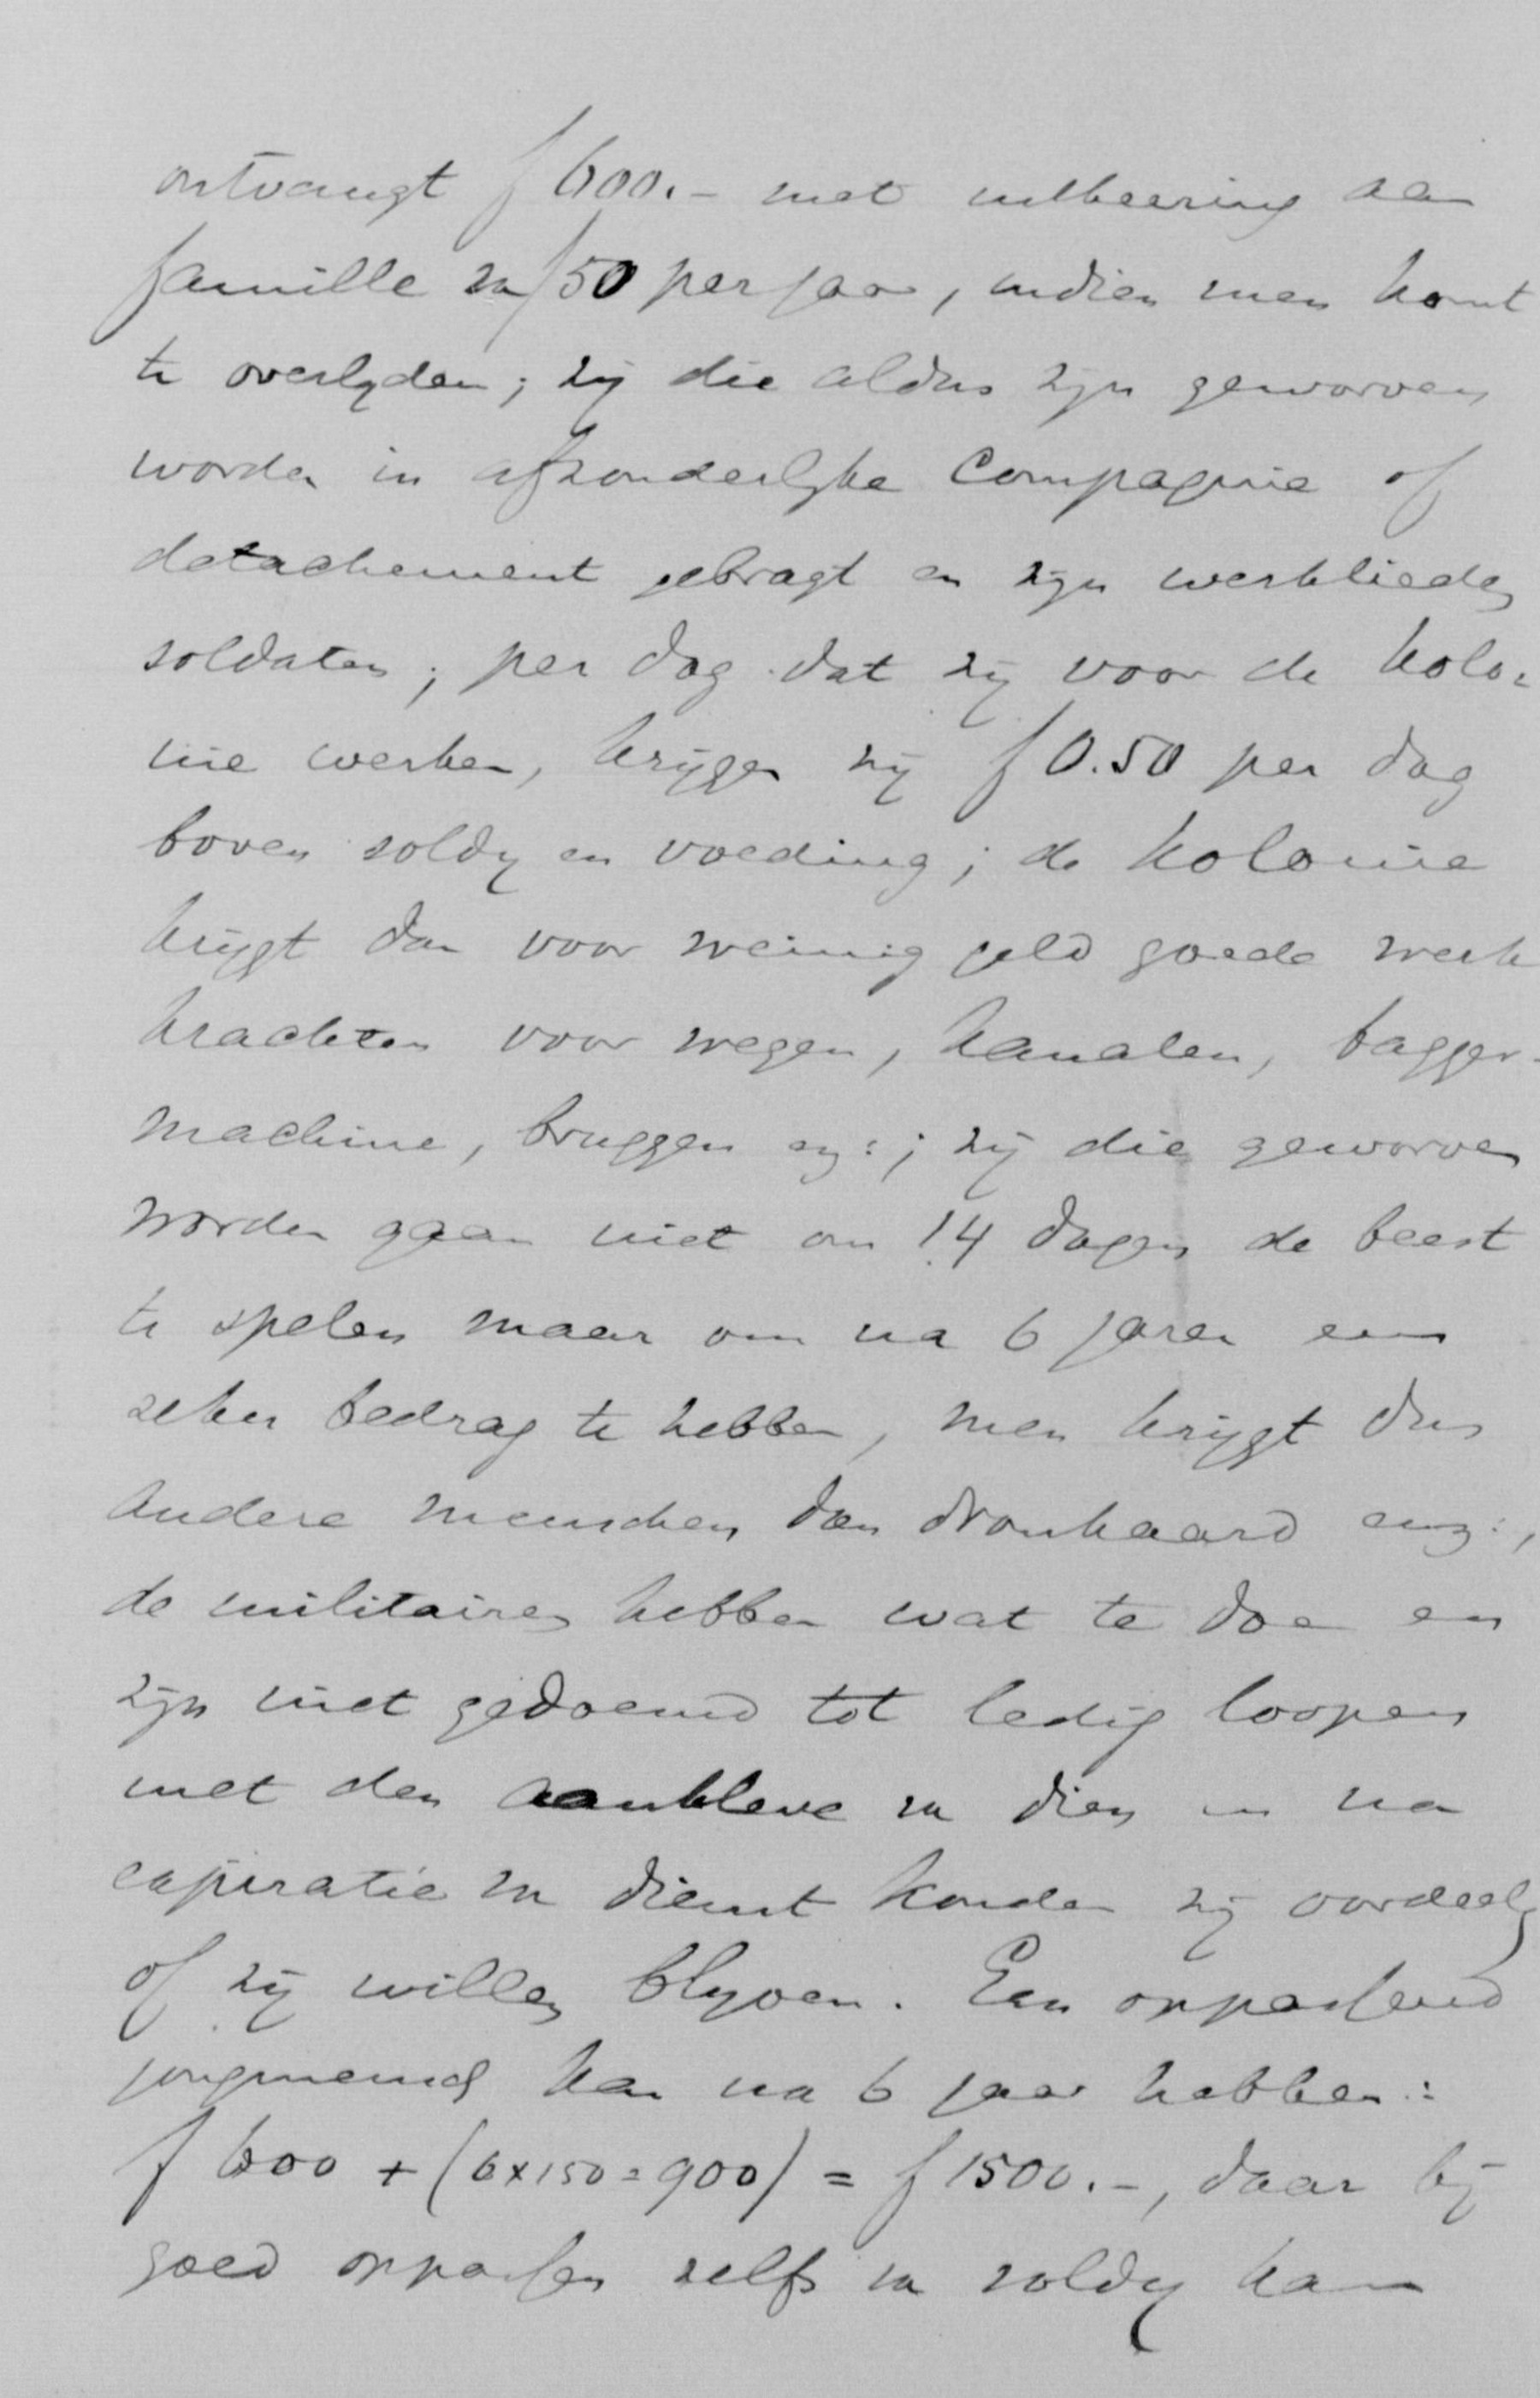 ontvangt f 600.- met uitkeering aan
famille van f 50 per jaar, indien men komt
te overlyden; zij die aldus zijn geworven
worden in afzonderlyke Compagnie of
detachement gebragt en zijn werklieden
soldaten; per dag dat zij voor de kolo-
nie werken, krijgen zij f 0.50 per dag
boven soldy en voeding; de kolonie
krijgt dan voor weinig geld goede werk
krachten voor wegen, kanalen, bagger-
machine, bruggen enz:; zij die geworven
worden gaan niet om 14 dagen de beest
te spelen maar om na 6 jaren een
zeker bedrag te hebben, men krijgt dus
andere menschen dan dronkaard enz:,
de militairen hebben wat te doen en
zijn niet gedoemd tot ledig loopen
met den aankleve van dien en na
expiratie van dienst konden zij oordeelen
of zij willen blyven. Een oppassend
jongmensch kan na 6 jaar hebben:
f 600 + (6x150=900) = f 1500.-, daar bij
goed oppassen zelfs van soldy kan